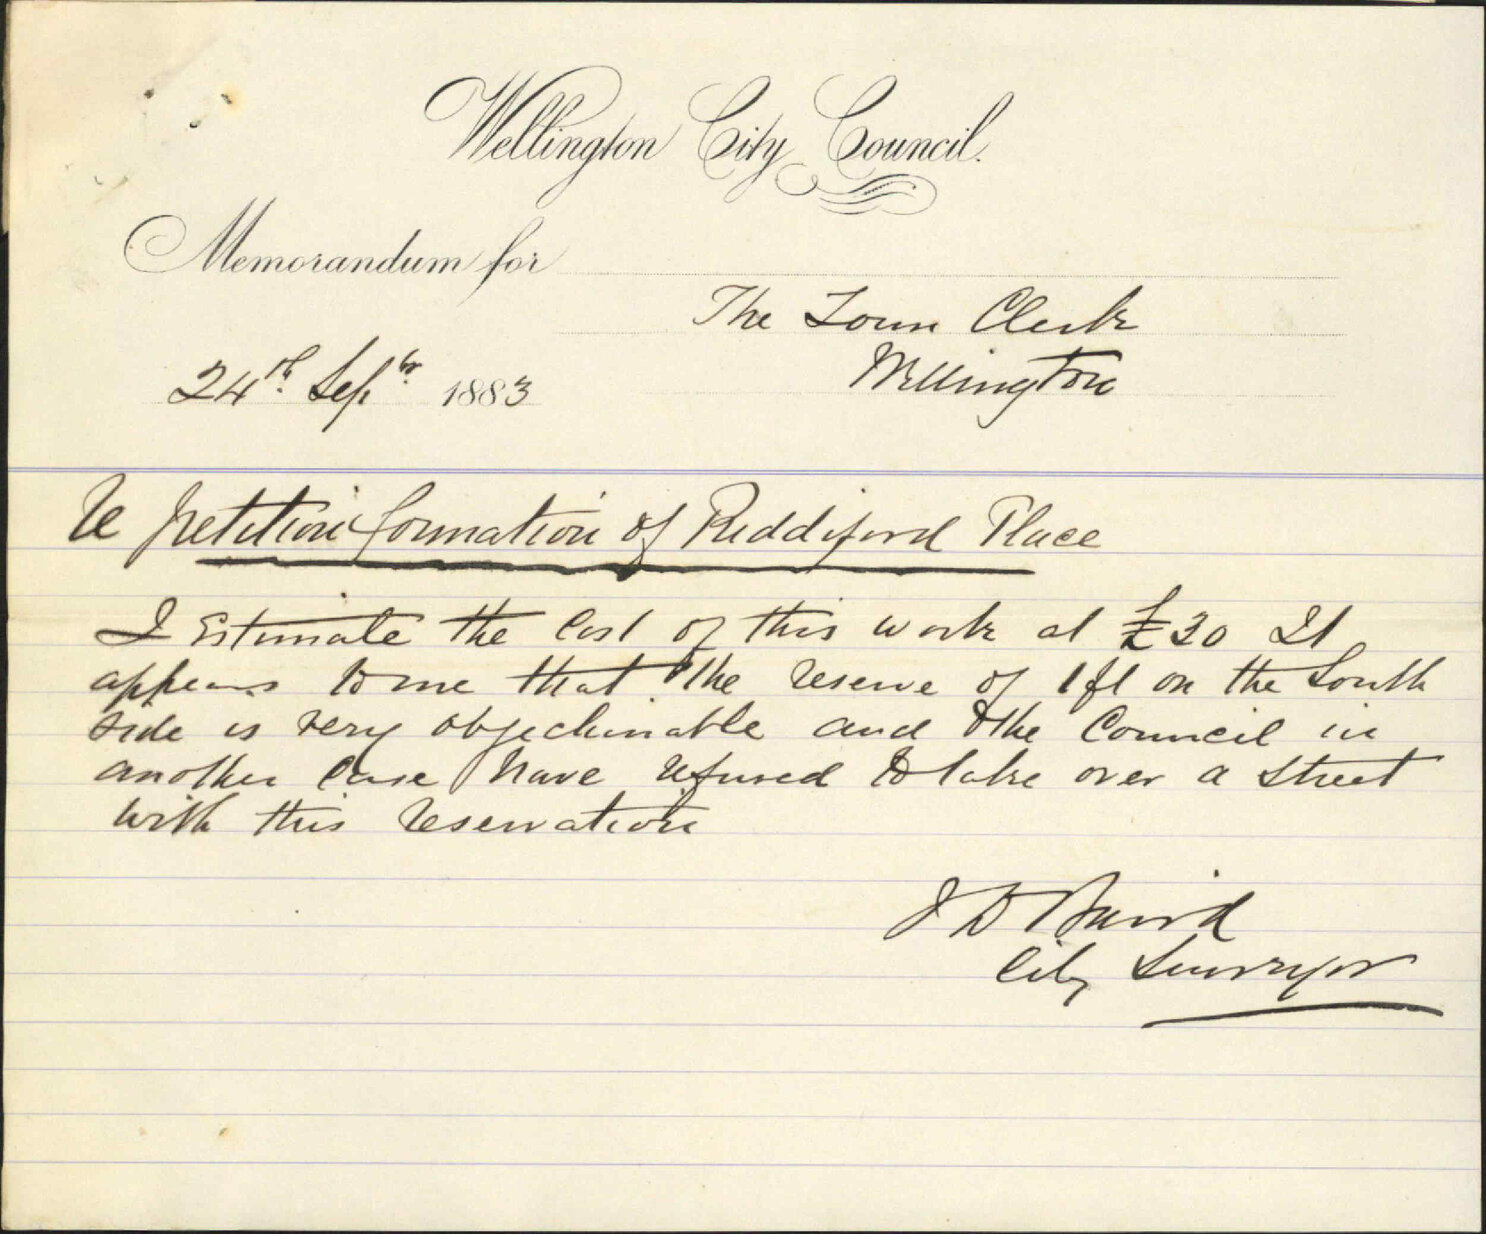 Wellington City Council.
Memorandum for
The Town Clerk
Wellington
24th Sepbr 1883
Re petition formation of Riddiford Place
I Estimate the Cost of this work at £30 It
appears to me that the reserve of 1 ft on the South
side is very objectionable and the Council in
another Case have refused to take over a street
with this reservation
J D Baird
City Surveyor